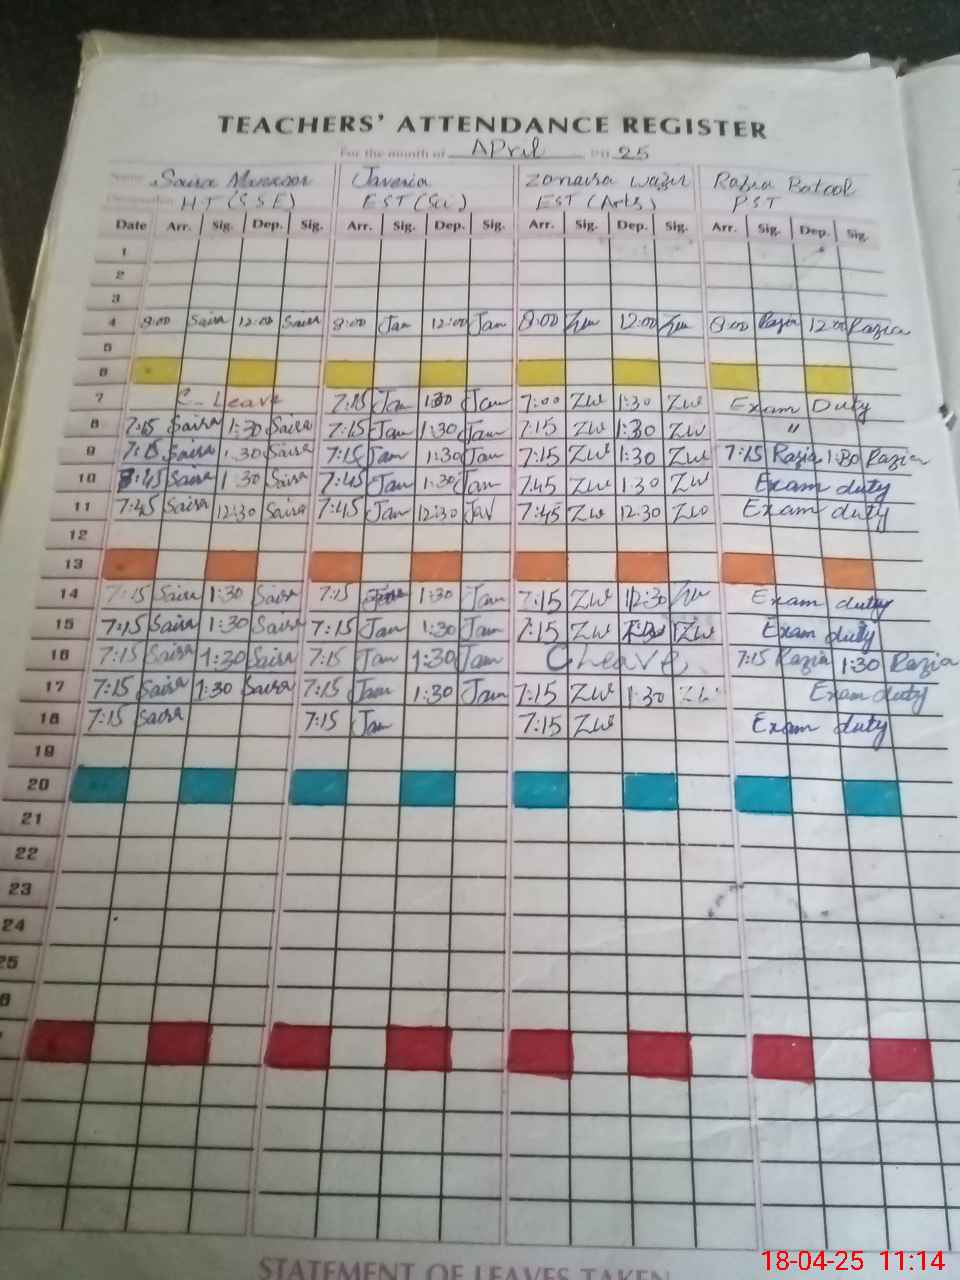 TEACHERS' ATTENDANCE REGISTER
For the month of April 25
Name Saira Javeria Zonaira Wazir Razia Batool
HT (SSE) EST (Sci) EST (Arts) PST
Date Arr. Sig. Dep. Sig. Arr. Sig. Dep. Sig. Arr. Sig. Dep. Sig. Arr. Sig. Dep. Sig.
1
2
3
4 8:00 Saira 12:00 Saira 8:00 Jav 12:00 Jav 8:00 12:00 8:00 Razia 12:00 Razia
5
6
7 C-Leave 7:15 Jav 1:30 Jav 7:00 ZW 1:30 ZW Exam Duty
8 7:15 Saira 1:30 Saira 7:15 Jav 1:30 Jav 7:15 ZW 1:30 ZW "
9 7:15 Saira 1:30 Saira 7:15 Jav 1:30 Jav 7:15 ZW 1:30 ZW 7:15 Razia 1:30 Razia
10 7:45 Saira 1:30 Saira 7:45 Jav 1:30 Jav 7:45 ZW 1:30 ZW Exam duty
11 7:45 Saira 12:30 Saira 7:45 Jav 12:30 Jav 7:45 ZW 12:30 ZW Exam duty
12
13
14 7:15 Saira 1:30 Saira 7:15 1:30 Jav 7:15 ZW 12:30 Exam duty
15 7:15 Saira 1:30 Saira 7:15 Jav 1:30 Jav 7:15 ZW ZW Exam duty
16 7:15 Saira 1:30 Saira 7:15 Jav 1:30 Jav C Leave 7:15 Razia 1:30 Razia
17 7:15 Saira 1:30 Saira 7:15 Jav 1:30 Jav 7:15 ZW 1:30 ZW Exam duty
18 7:15 Saira 7:15 Jav 7:15 ZW Exam duty
19
20
21
22
23
24
25
STATEMENT OF LEAVES TAKEN
18-04-25 11:14